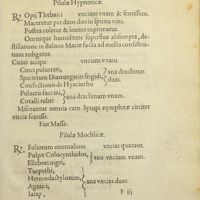 Pilulæ Hypnoticæ.
℞. Opij Thebaici vnciam vnam & semissem.
Maceretur per duos dies in spiritu vini.
Postea coletur & leniter exprimatur.
Omnique humiditate superflua absumpta, de-
stillatione in Balneo Mariæ facta ad mellis consisten-
tiam redigatur.
Cuius accipe vnciam vnam
Croci puluerati,
Specierum Diamargariti frigidi, } ana drachmas
Confectionis de Hyacintho } duas.
Pulueris succini,
Coralli rubri } ana drachmam vnam.
Misceantur omnia cum Syrupi nymphææ circiter
vncia semisse.
Fiat Massa.
Pilulæ Mochlicæ.
℞. Foliorum orientalium vncias quatuor.
Pulpæ Colocynthidos,
Ellebori nigri, } ana vnciam vnam.
Turpethi,
Hermodactylorum,
Agarici, } ana vncias duas.
F iij